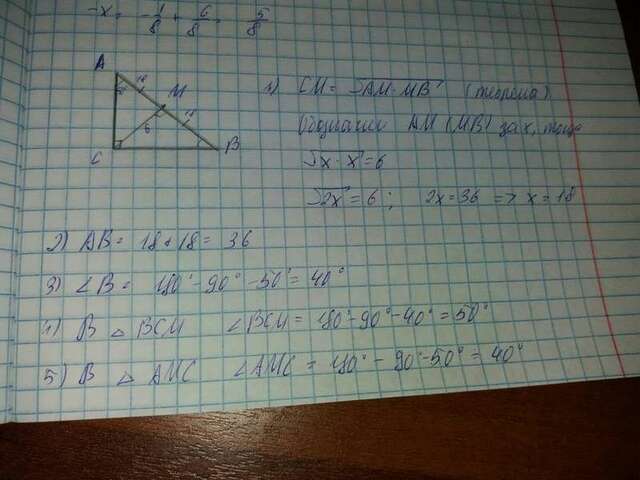 -x = -1/8 + 6/8 5/8
A
M
6
C
B
1) CM = √AM·MB (теорема)
AM (MB) за x, тоді
√x·x = 6
√2x = 6; 2x = 36 => x = 18
2) AB = 18 + 18 = 36
3) ∠B = 180° - 90° - 50° = 40°
4) В △ BCM ∠BCM = 180° - 90° - 40° = 50°
5) В △ AMC ∠AMC = 180° - 90° - 50° = 40°